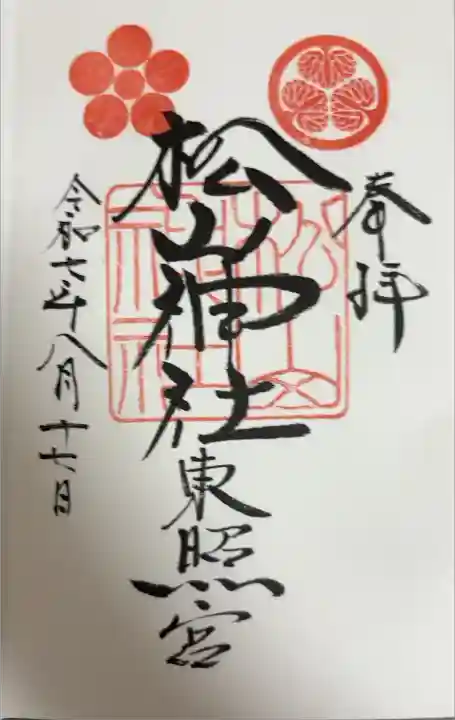 奉拝
松山神社
東照宮
令和六年八月十七日
松山
神社